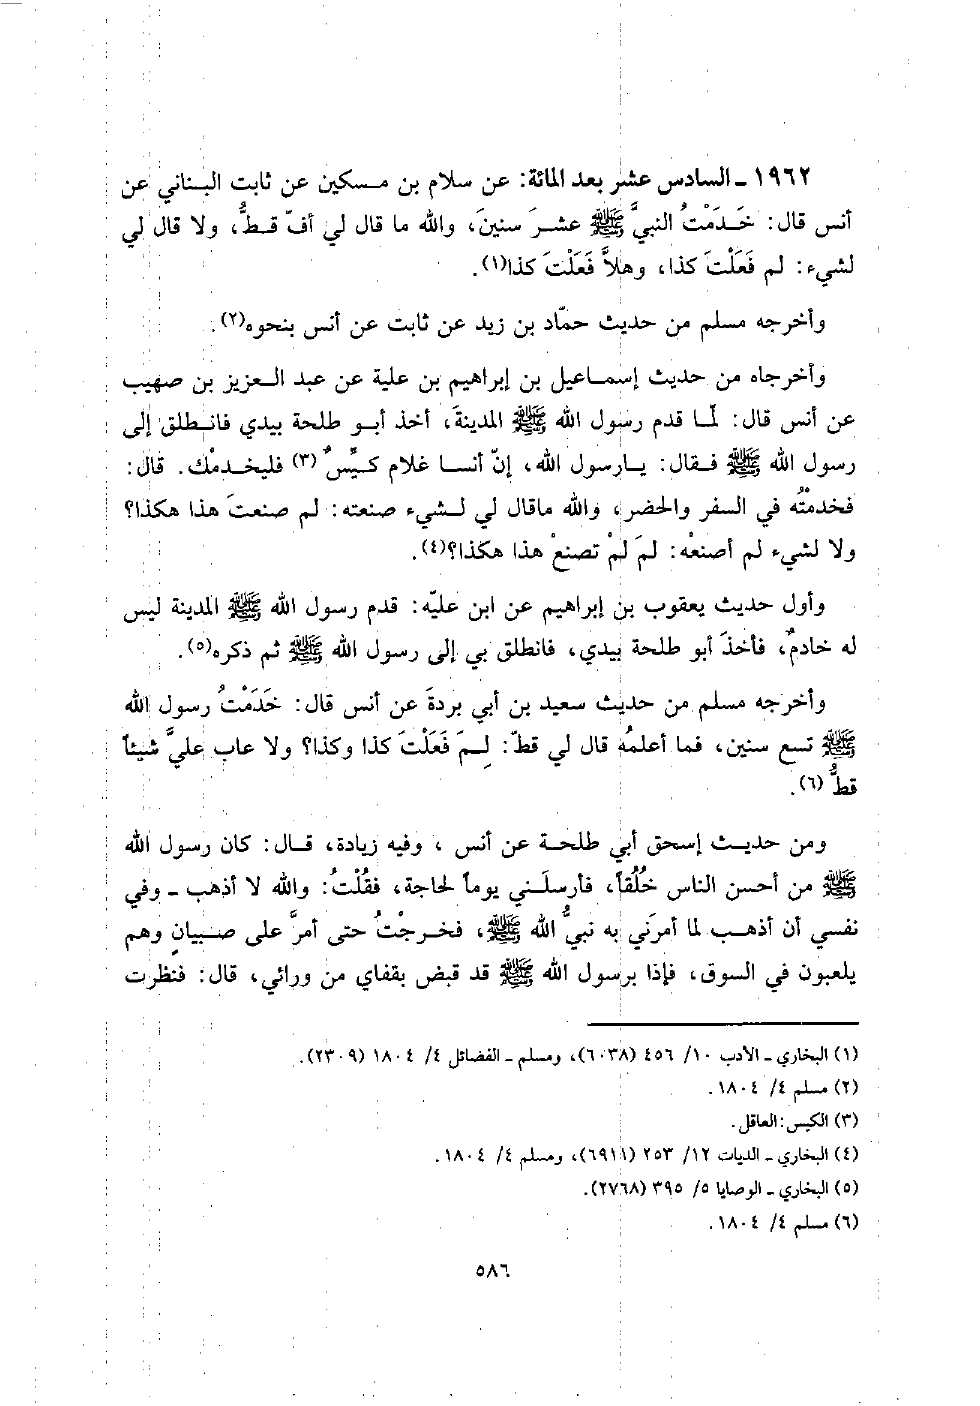 ١٩٦٢ ـ السادس عشر بعد المائة: عن سلام بن مسكين عن ثابت البناني عن
أنس قال: خَدَمْتُ النبيَّ ﷺ عشرَ سنينَ، والله ما قال لي أفّ قطُّ، ولا قال لي
لشيء: لم فَعَلْتَ كذا، وهلاَّ فَعَلْتَ كذا(١).
وأخرجه مسلم من حديث حمّاد بن زيد عن ثابت عن أنس بنحوه(٢).
وأخرجاه من حديث إسماعيل بن إبراهيم بن علية عن عبد العزيز بن صهيب
عن أنس قال: لمّا قدم رسول الله ﷺ المدينةَ، أخذ أبو طلحة بيدي فانطلق إلى
رسول الله ﷺ فقال: يارسول الله، إنّ أنسا غلام كيّسٌ(٣) فليخدمْك. قال:
فخدمْتُه في السفر والحضر، والله ماقال لي لشيء صنعته: لم صنعتَ هذا هكذا؟
ولا لشيء لم أصنعْه: لمَ لمْ تصنعْ هذا هكذا؟(٤).
وأول حديث يعقوب بن إبراهيم عن ابن عليّه: قدم رسول الله ﷺ المدينة ليس
له خادمٌ، فأخذَ أبو طلحة بيدي، فانطلق بي إلى رسول الله ﷺ ثم ذكره(٥).
وأخرجه مسلم من حديث سعيد بن أبي بردةَ عن أنس قال: خَدَمْتُ رسول الله
ﷺ تسع سنين، فما أعلمُه قال لي قطّ: لِمَ فَعَلْتَ كذا وكذا؟ ولا عاب عليَّ شيئاً
قطُّ(٦).
ومن حديث إسحق أبي طلحة عن أنس ، وفيه زيادة، قال: كان رسول الله
ﷺ من أحسن الناس خُلُقاً، فأرسلَني يوماً لحاجة، فقُلْتُ: والله لا أذهب ـ وفي
نفسي أن أذهب لما أمرَني به نبيُّ الله ﷺ، فخرجْتُ حتى أمرَّ على صبيانٍ وهم
يلعبون في السوق، فإذا برسول الله ﷺ قد قبض بقفاي من ورائي، قال: فنظرت
(١) البخاري ـ الأدب ١٠/ ٤٥٦ (٦٠٣٨)، ومسلم ـ الفضائل ٤/ ١٨٠٤ (٢٣٠٩).
(٢) مسلم ٤/ ١٨٠٤.
(٣) الكيس: العاقل.
(٤) البخاري ـ الديات ١٢/ ٢٥٣ (٦٩١١)، ومسلم ٤/ ١٨٠٤.
(٥) البخاري ـ الوصايا ٥/ ٣٩٥ (٢٧٦٨).
(٦) مسلم ٤/ ١٨٠٤.
٥٨٦